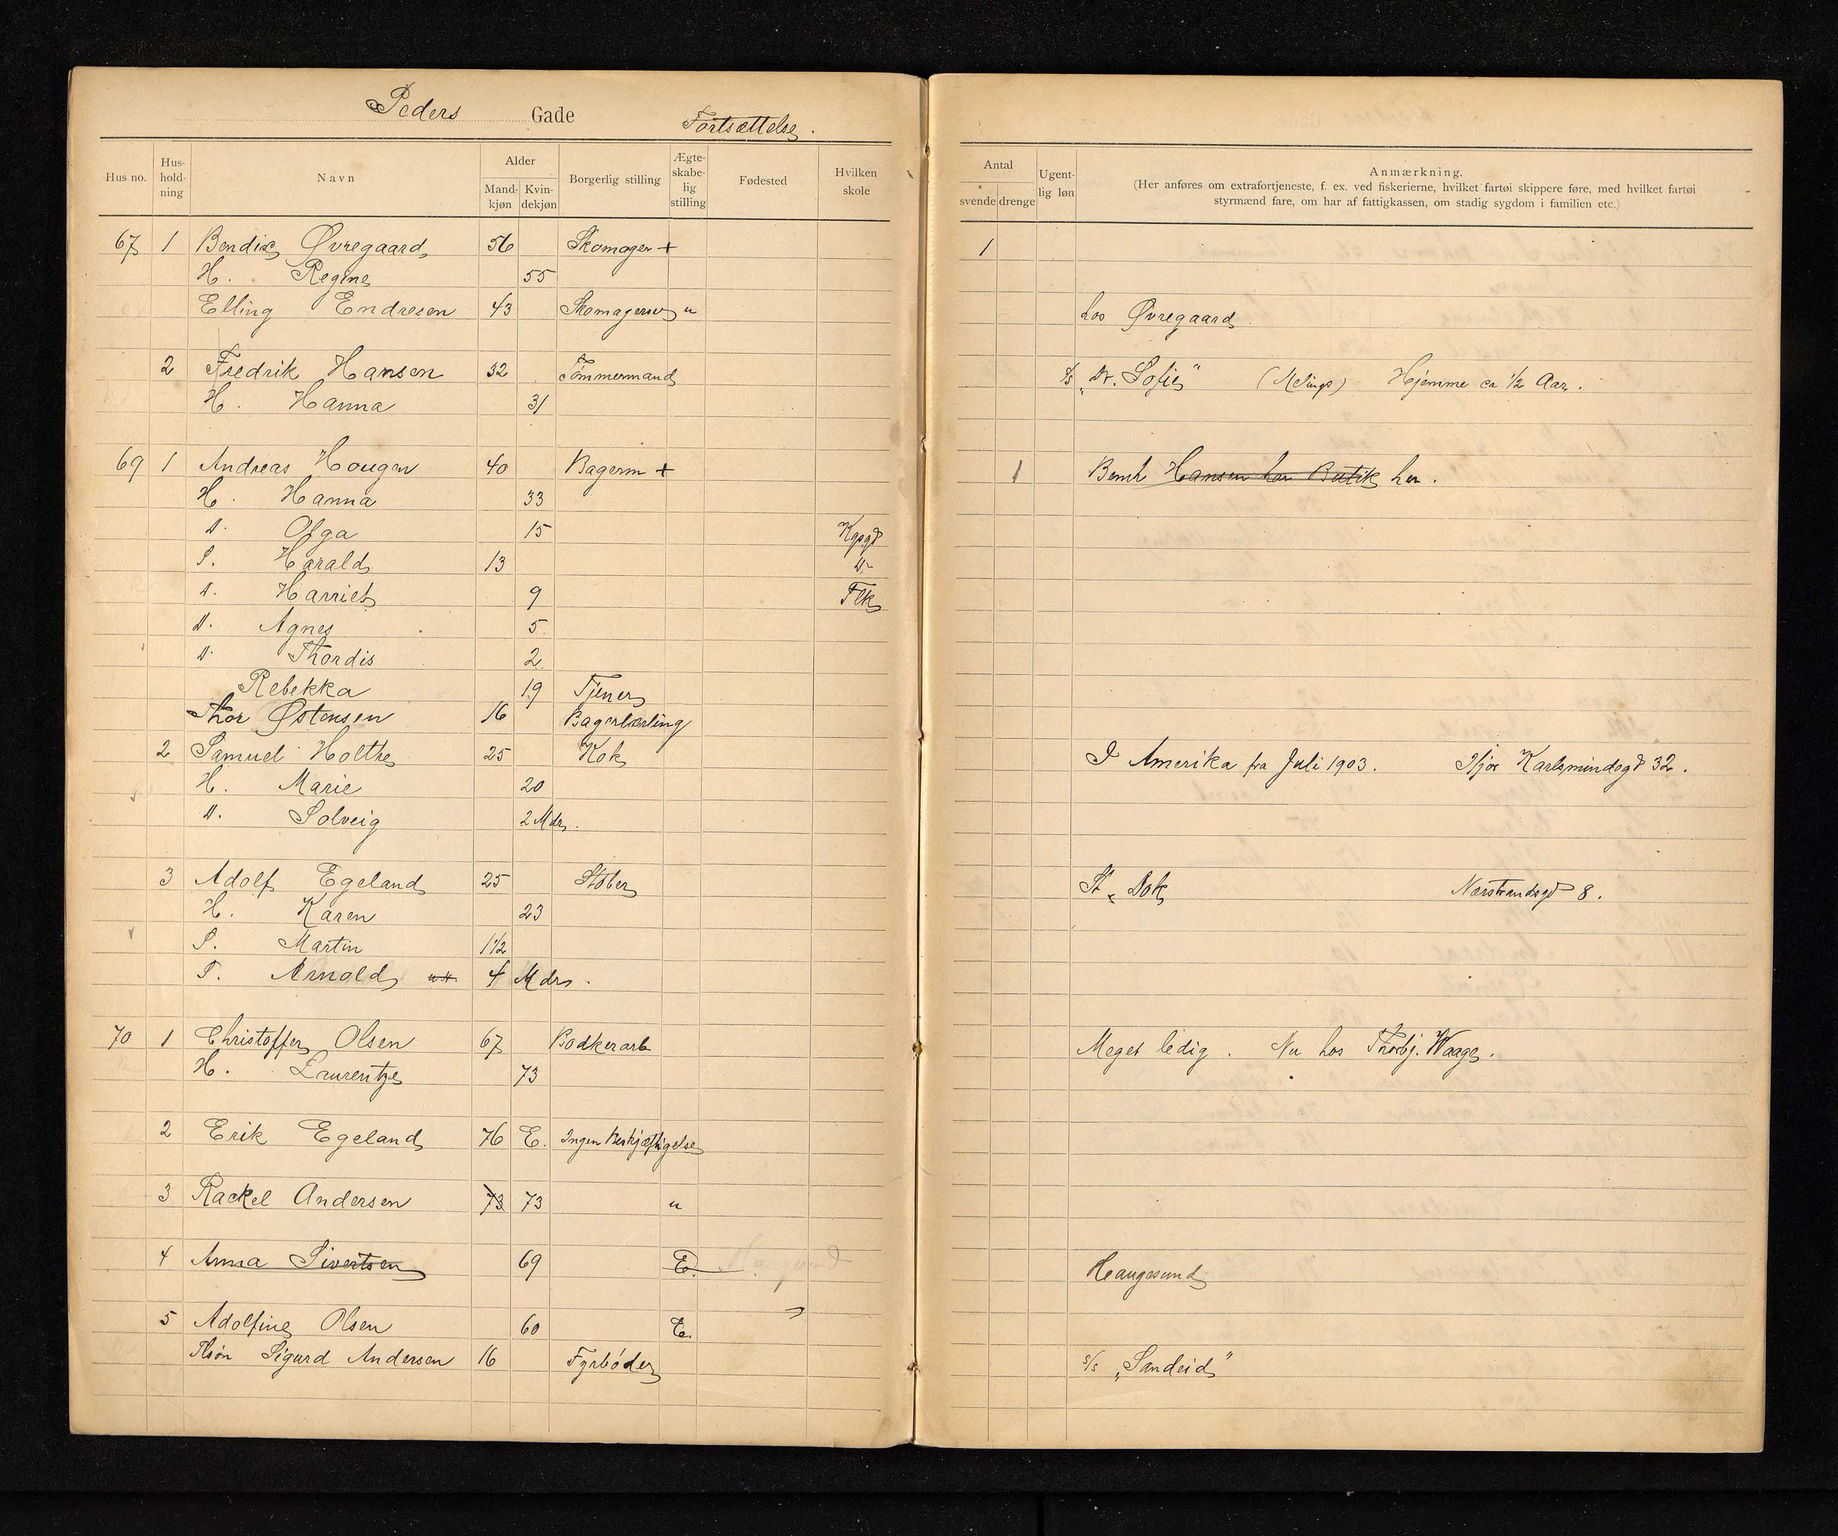 Peders Gade Fortsættelse.
Hus no. Hus-holdning Navn Alder Mandkjøn Kvindekjøn Borgerlig stilling Ægteskabelig stilling Fødested Hvilken skole
Antal svende drenge Ugentlig løn Anmærkning.
(Her anføres om extrafortjeneste, f. ex. ved fiskerierne, hvilket fartøi skippere føre, med hvilket fartøi
styrmænd fare, om har af fattigkassen, om stadig sygdom i familien etc.)
67 1 Bendix Øvregaard 56 Skomager + 1
H. Regine 55
Elling Endresen 43 Skomagersv u hos Øvregaard.
2 Fredrik Hansen 32 Tömmermand S/s „Dr. Sofie" (Melings) Hjemme ca 1/2 Aar.
H. Hanna 31
69 1 Andreas Hougen 40 Bagerm + 1 Bernh Hansen har Butik her.
H. Hanna 33
D. Olga 15 Kgsgd
S. Harald 13 D-
D. Harriet 9 Flk
D. Agnes 5
D. Thordis 2
Rebekka 19 Tjener
Thor Østensen 16 Bagerlærling
2 Samuel Holthe 25 Kok I Amerika fra Juli 1903. Ifjor Karlsmindegd 32.
H. Marie 20
D. Solveig 2 Mdr.
3 Adolf Egeland 25 Støber St. Dok Nærstrandsgd 8.
H. Karen 23
S. Martin 1 1/2
S. Arnold 4 Mdr.
70 1 Christoffer Olsen 67 Bødkerarb Meget ledig. Nu hos Thorbj. Waage.
H. Laurentze 73
2 Erik Egeland 76 E. Ingen Beskjæftigelse
3 Rackel Andersen 73 73 u
4 Anna Sivertsen 69 E. Haugesund
5 Adolfine Olsen 60 E.
Plsøn Sigurd Andersen 16 Fyrbøder s/s „Sandeid"